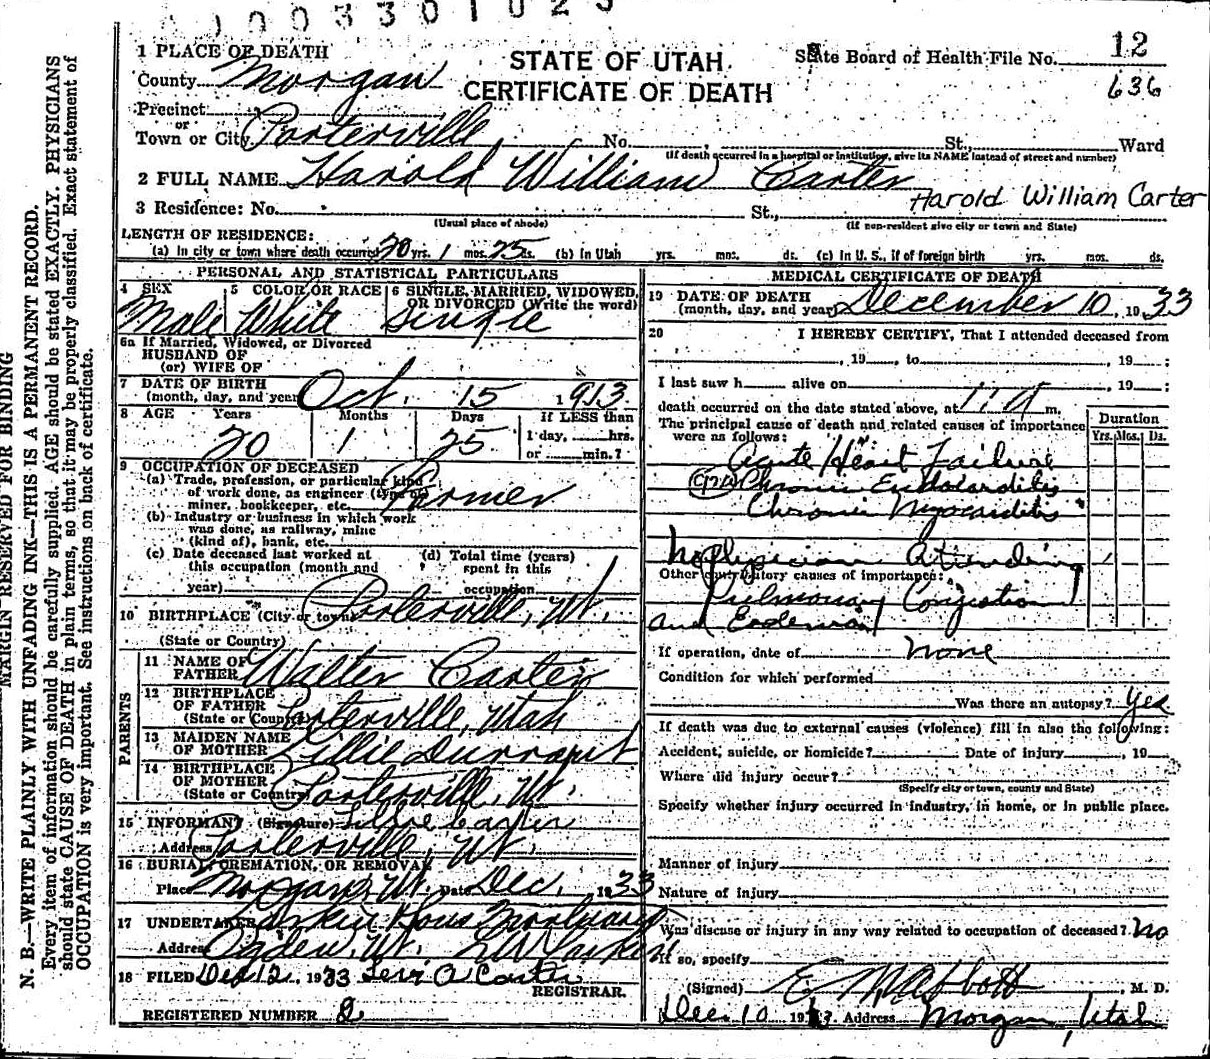 1003301023
1 PLACE OF DEATH
STATE OF UTAH
CERTIFICATE OF DEATH
State Board of Health File No. 12
636
County Morgan
Precinct
or
Town or City Porterville No. St., Ward
(If death occurred in a hospital or institution, give its NAME instead of street and number)
2 FULL NAME Harold William Carter
Harold William Carter
3 Residence: No. St.,
(Usual place of abode) (If non-resident give city or town and State)
LENGTH OF RESIDENCE:
(a) In city or town where death occurred 20 yrs. 1 mos. 25 ds. (b) In Utah yrs. mos. ds. (c) In U. S., if of foreign birth yrs. mos. ds.
PERSONAL AND STATISTICAL PARTICULARS
4 SEX 5 COLOR OR RACE 6 SINGLE, MARRIED, WIDOWED,
OR DIVORCED (Write the word)
Male White Single
6a If Married, Widowed, or Divorced
HUSBAND OF
(or) WIFE OF
7 DATE OF BIRTH
(month, day, and year) Oct. 15 1913
8 AGE Years Months Days If LESS than
20 1 25 1 day, hrs.
or min.?
9 OCCUPATION OF DECEASED
(a) Trade, profession, or particular kind
of work done, as engineer (type of)
miner, bookkeeper, etc. Farmer
(b) Industry or business in which work
was done, as railway, mine
(kind of), bank, etc.
(c) Date deceased last worked at (d) Total time (years)
this occupation (month and spent in this
year) occupation
10 BIRTHPLACE (City or town) Porterville, Ut.
(State or Country)
PARENTS
11 NAME OF
FATHER Walter Carter
12 BIRTHPLACE
OF FATHER
(State or Country) Porterville, Utah
13 MAIDEN NAME
OF MOTHER Lillie Durrant
14 BIRTHPLACE
OF MOTHER
(State or Country) Porterville, Ut.
15 INFORMANT (Signature) Lillie Carter
Address Porterville, Ut.
16 BURIAL, CREMATION, OR REMOVAL
Place Morgan, Ut. Date Dec. 1933
17 UNDERTAKER Larkin & Sons Mortuary
Address Ogden, Ut.
18 FILED Dec 12, 1933 Levi A Carter
REGISTRAR.
REGISTERED NUMBER 2
MEDICAL CERTIFICATE OF DEATH
19 DATE OF DEATH
(month, day, and year) December 10, 1933
20 I HEREBY CERTIFY, That I attended deceased from
, 19 , to , 19 :
I last saw h alive on , 19 ;
death occurred on the date stated above, at m.
The principal cause of death and related causes of importance
were as follows:
Duration
Yrs. Mos. Ds.
Acute Heart Failure
Chronic Endocarditis
Chronic Myocarditis
No Physician Attending
Other contributory causes of importance:
Pulmonary Congestion
and Eodema
If operation, date of none
Condition for which performed
Was there an autopsy? Yes
If death was due to external causes (violence) fill in also the following:
Accident, suicide, or homicide? Date of injury , 19
Where did injury occur?
(Specify city or town, county and State)
Specify whether injury occurred in industry, in home, or in public place.
Manner of injury
Nature of injury
Was disease or injury in any way related to occupation of deceased? No
If so, specify
(Signed) E M Abbott , M. D.
Dec. 10 1933 Address Morgan, Utah
MARGIN RESERVED FOR BINDING
N. B.—WRITE PLAINLY WITH UNFADING INK—THIS IS A PERMANENT RECORD.
Every item of information should be carefully supplied. AGE should be stated EXACTLY. PHYSICIANS
should state CAUSE OF DEATH in plain terms, so that it may be properly classified. Exact statement of
OCCUPATION is very important. See instructions on back of certificate.